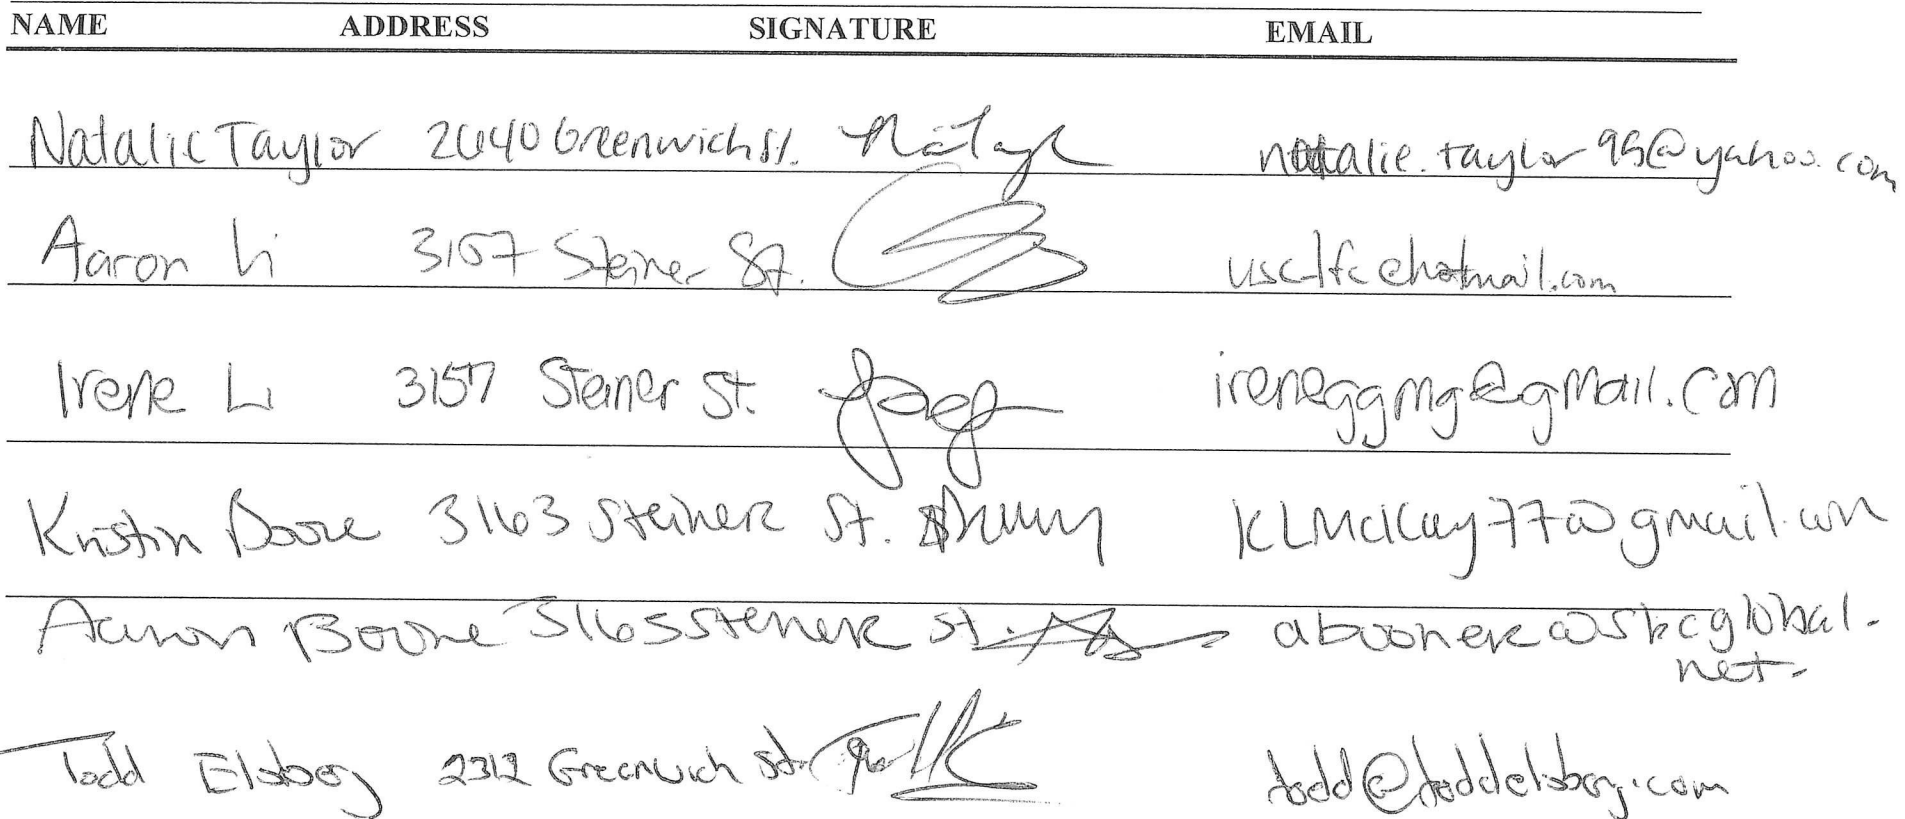 NAME ADDRESS SIGNATURE EMAIL
Natalie Taylor 2640 Greenwich St. natalie.taylor95@yahoo.com
Aaron Li 3157 Steiner St. usclfc@hotmail.com
Irene Li 3157 Steiner St. ireneggmg@gmail.com
Kristin Boone 3163 Steiner St. KLMcKay77@gmail.com
Aaron Boone 3163 Steiner St. aboonek@sbcglobal.
net
Todd Elsberg 2312 Greenwich St. todd@toddelsberg.com